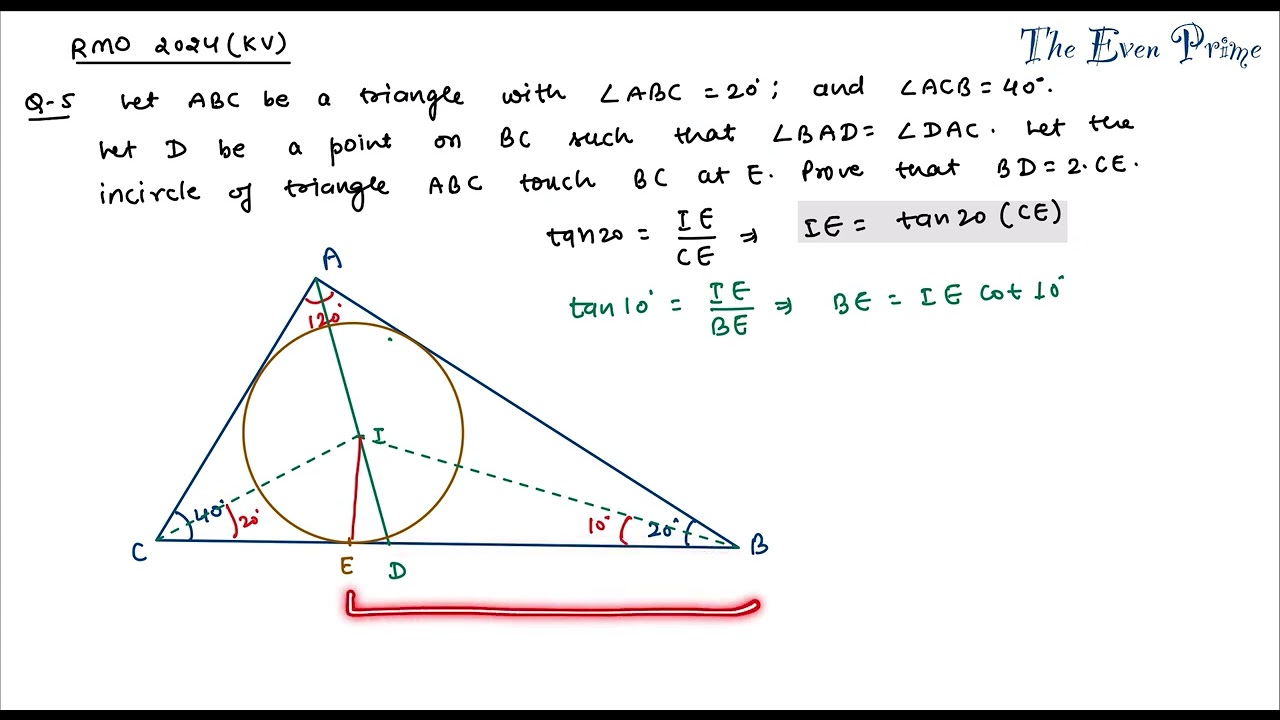 RMO 2024 (KV)
The Even Prime
Q-5 Let ABC be a triangle with ∠ABC = 20°; and ∠ACB = 40°.
Let D be a point on BC such that ∠BAD = ∠DAC. Let the
incircle of triangle ABC touch BC at E. Prove that BD = 2·CE.
tan20 = IE/CE ⇒ IE = tan20 (CE)
tan10° = IE/BE ⇒ BE = IE cot 10°
A
120°
I
40° 20° 10° 20°
C E D B